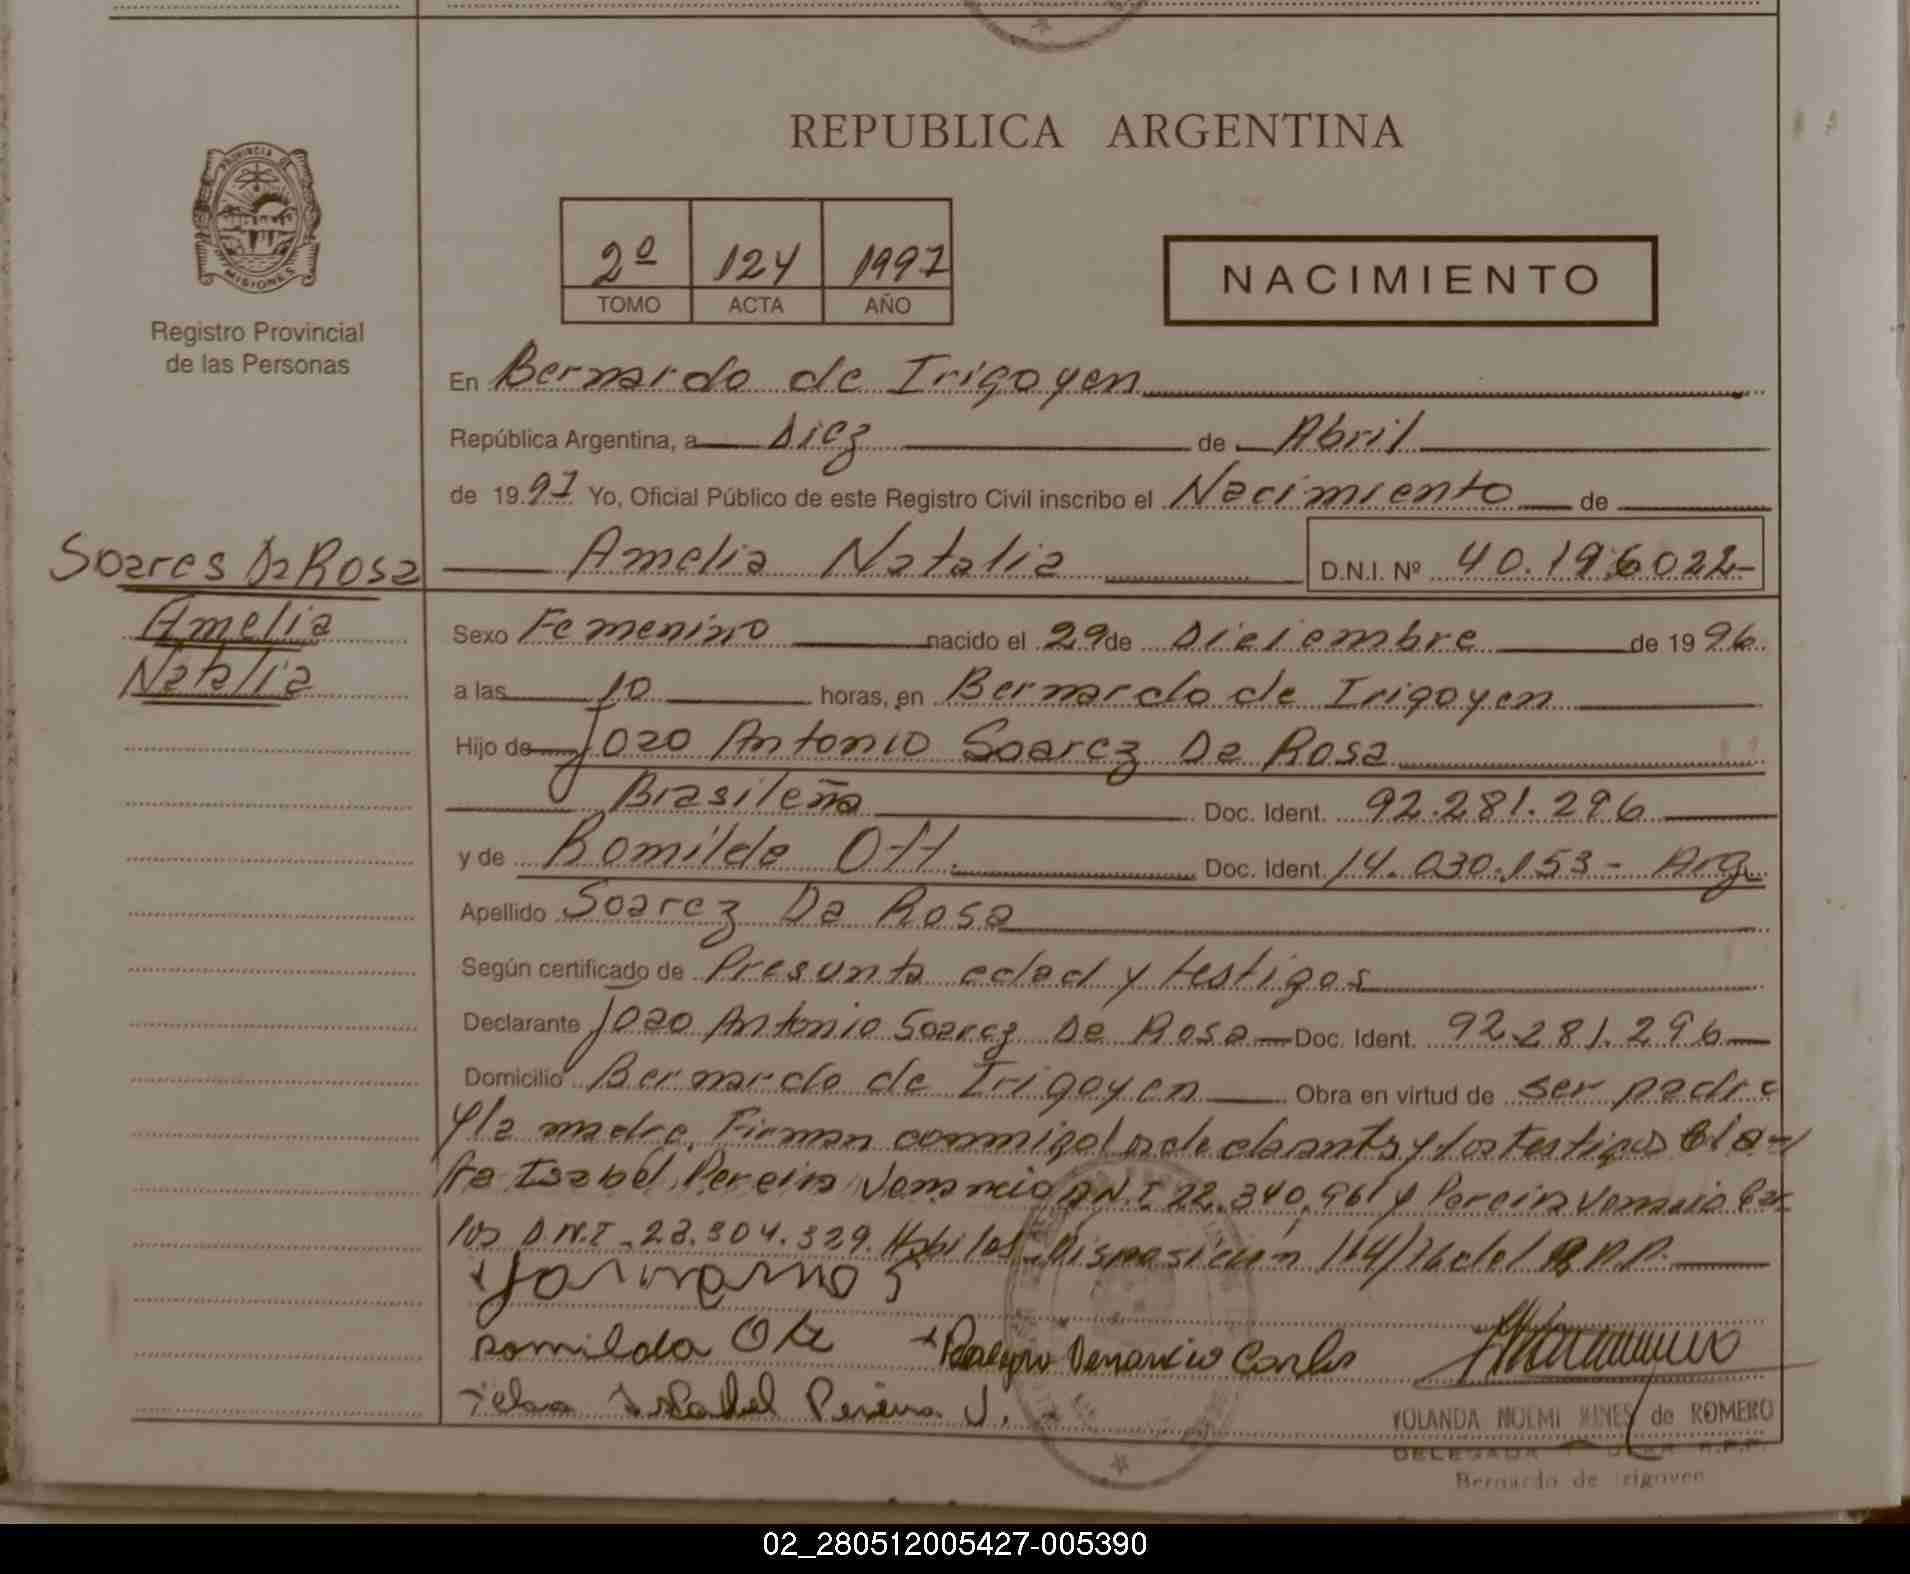 REPUBLICA ARGENTINA
PROVINCIA DE
MISIONES
Registro Provincial
de las Personas
2º 124 1997
TOMO ACTA AÑO
NACIMIENTO
En Bernardo de Irigoyen
República Argentina, a Diez de Abril
de 19 97 Yo, Oficial Público de este Registro Civil inscribo el Nacimiento de
Soares Da Rosa
Amelia
Natalia
Amelia Natalia D.N.I. Nº 40.196022-
Sexo Femenino nacido el 29 de Diciembre de 19 96
a las 10 horas, en Bernardo de Irigoyen
Hijo de Joao Antonio Soarez Da Rosa
Brasileña Doc. Ident. 92.281.296
y de Romilda Ott. Doc. Ident. 14.030.153 - Arg.
Apellido Soarez Da Rosa
Según certificado de Presunta edad y testigos
Declarante Joao Antonio Soarez Da Rosa Doc. Ident. 92.281.296
Domicilio Bernardo de Irigoyen Obra en virtud de ser padre
y la madre. Firman conmigo los declarantes y los testigos
Isabel Pereira Venancio D.N.I 22.340.961 y Pereira Venancio Car
los D.N.I - 23.304.329. Habiles - Disposición 114/76 del R.P.P.
Romilda Ott Venancio Carlos
Isabel Pereira V.
YOLANDA NOEMI de ROMERO
DELEGADA R.P.P.
Bernardo de Irigoyen
02_280512005427-005390